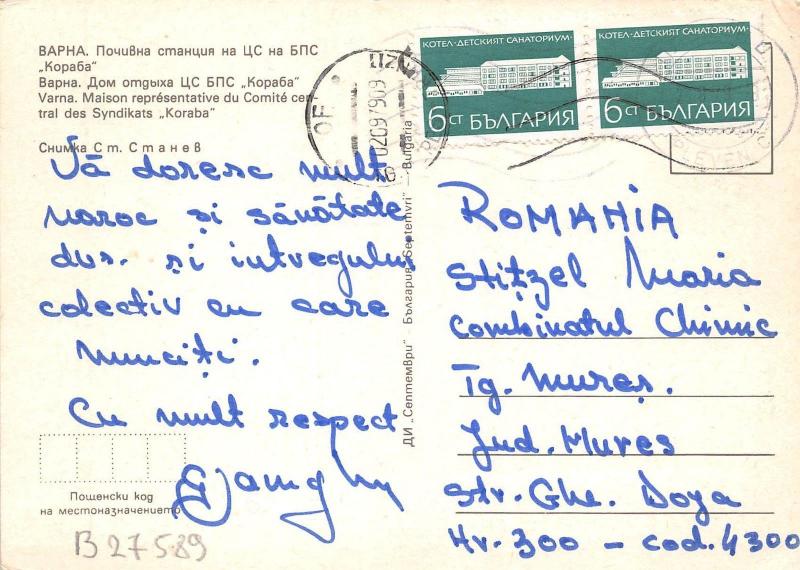 ВАРНА. Почивна станция на ЦС на БПС
„Кораба"
Варна. Дом отдыха ЦС БПС „Кораба"
Varna. Maison représentative du Comité cen-
tral des Syndikats „Koraba"
Снимка Ст. Станев
Vă doresc mult
noroc și sănătate
dvs. și întregului
colectiv cu care
munciți.
Cu mult respect
Пощенски код
на местоназначението
B 27589
ДИ „Септември" — България „Septemvri" — Bulgaria
КОТЕЛ-ДЕТСКИЯТ САНАТОРИУМ
6 СТ БЪЛГАРИЯ
КОТЕЛ-ДЕТСКИЯТ САНАТОРИУМ
6 СТ БЪЛГАРИЯ
ROMANIA
Stițzel Maria
Combinatul Chimic
Tg. Mureș.
Jud. Mureș
Str. Ghe. Doja
Nr. 300 – cod. 4300